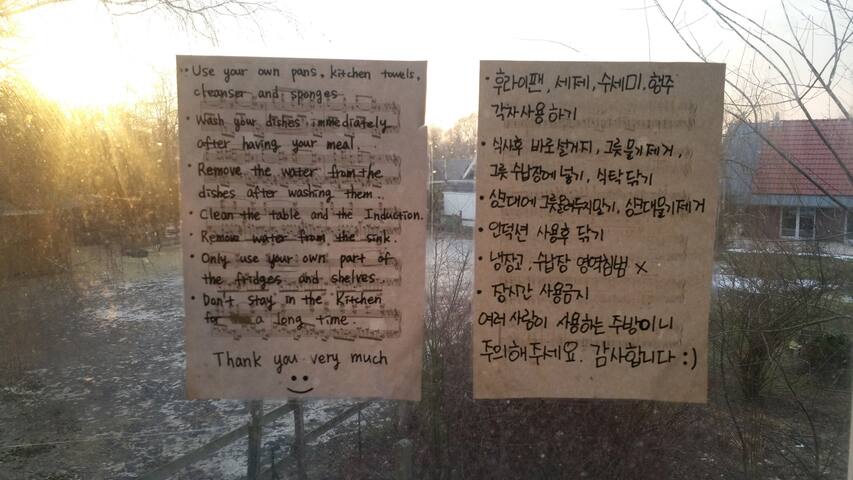 • Use your own pans, kitchen towels,
cleanser and sponges
• Wash your dishes immediately
after having your meal.
• Remove the water from the
dishes after washing them..
• Clean the table and the Induction.
• Remove water from the sink.
• Only use your own part of
the fridges and shelves.
• Don't stay in the Kitchen
for a long time.
Thank you very much
• 후라이팬, 세제, 수세미, 행주
각자사용하기
• 식사후 바로설거지, 그릇물기제거,
그릇 수납장에 넣기, 식탁 닦기
• 싱크대에 그릇올려두지말기, 싱크대물기제거
• 인덕션 사용후 닦기
• 냉장고, 수납장 영역침범 x
• 장시간 사용금지
여러 사람이 사용하는 주방이니
주의해주세요. 감사합니다 :)